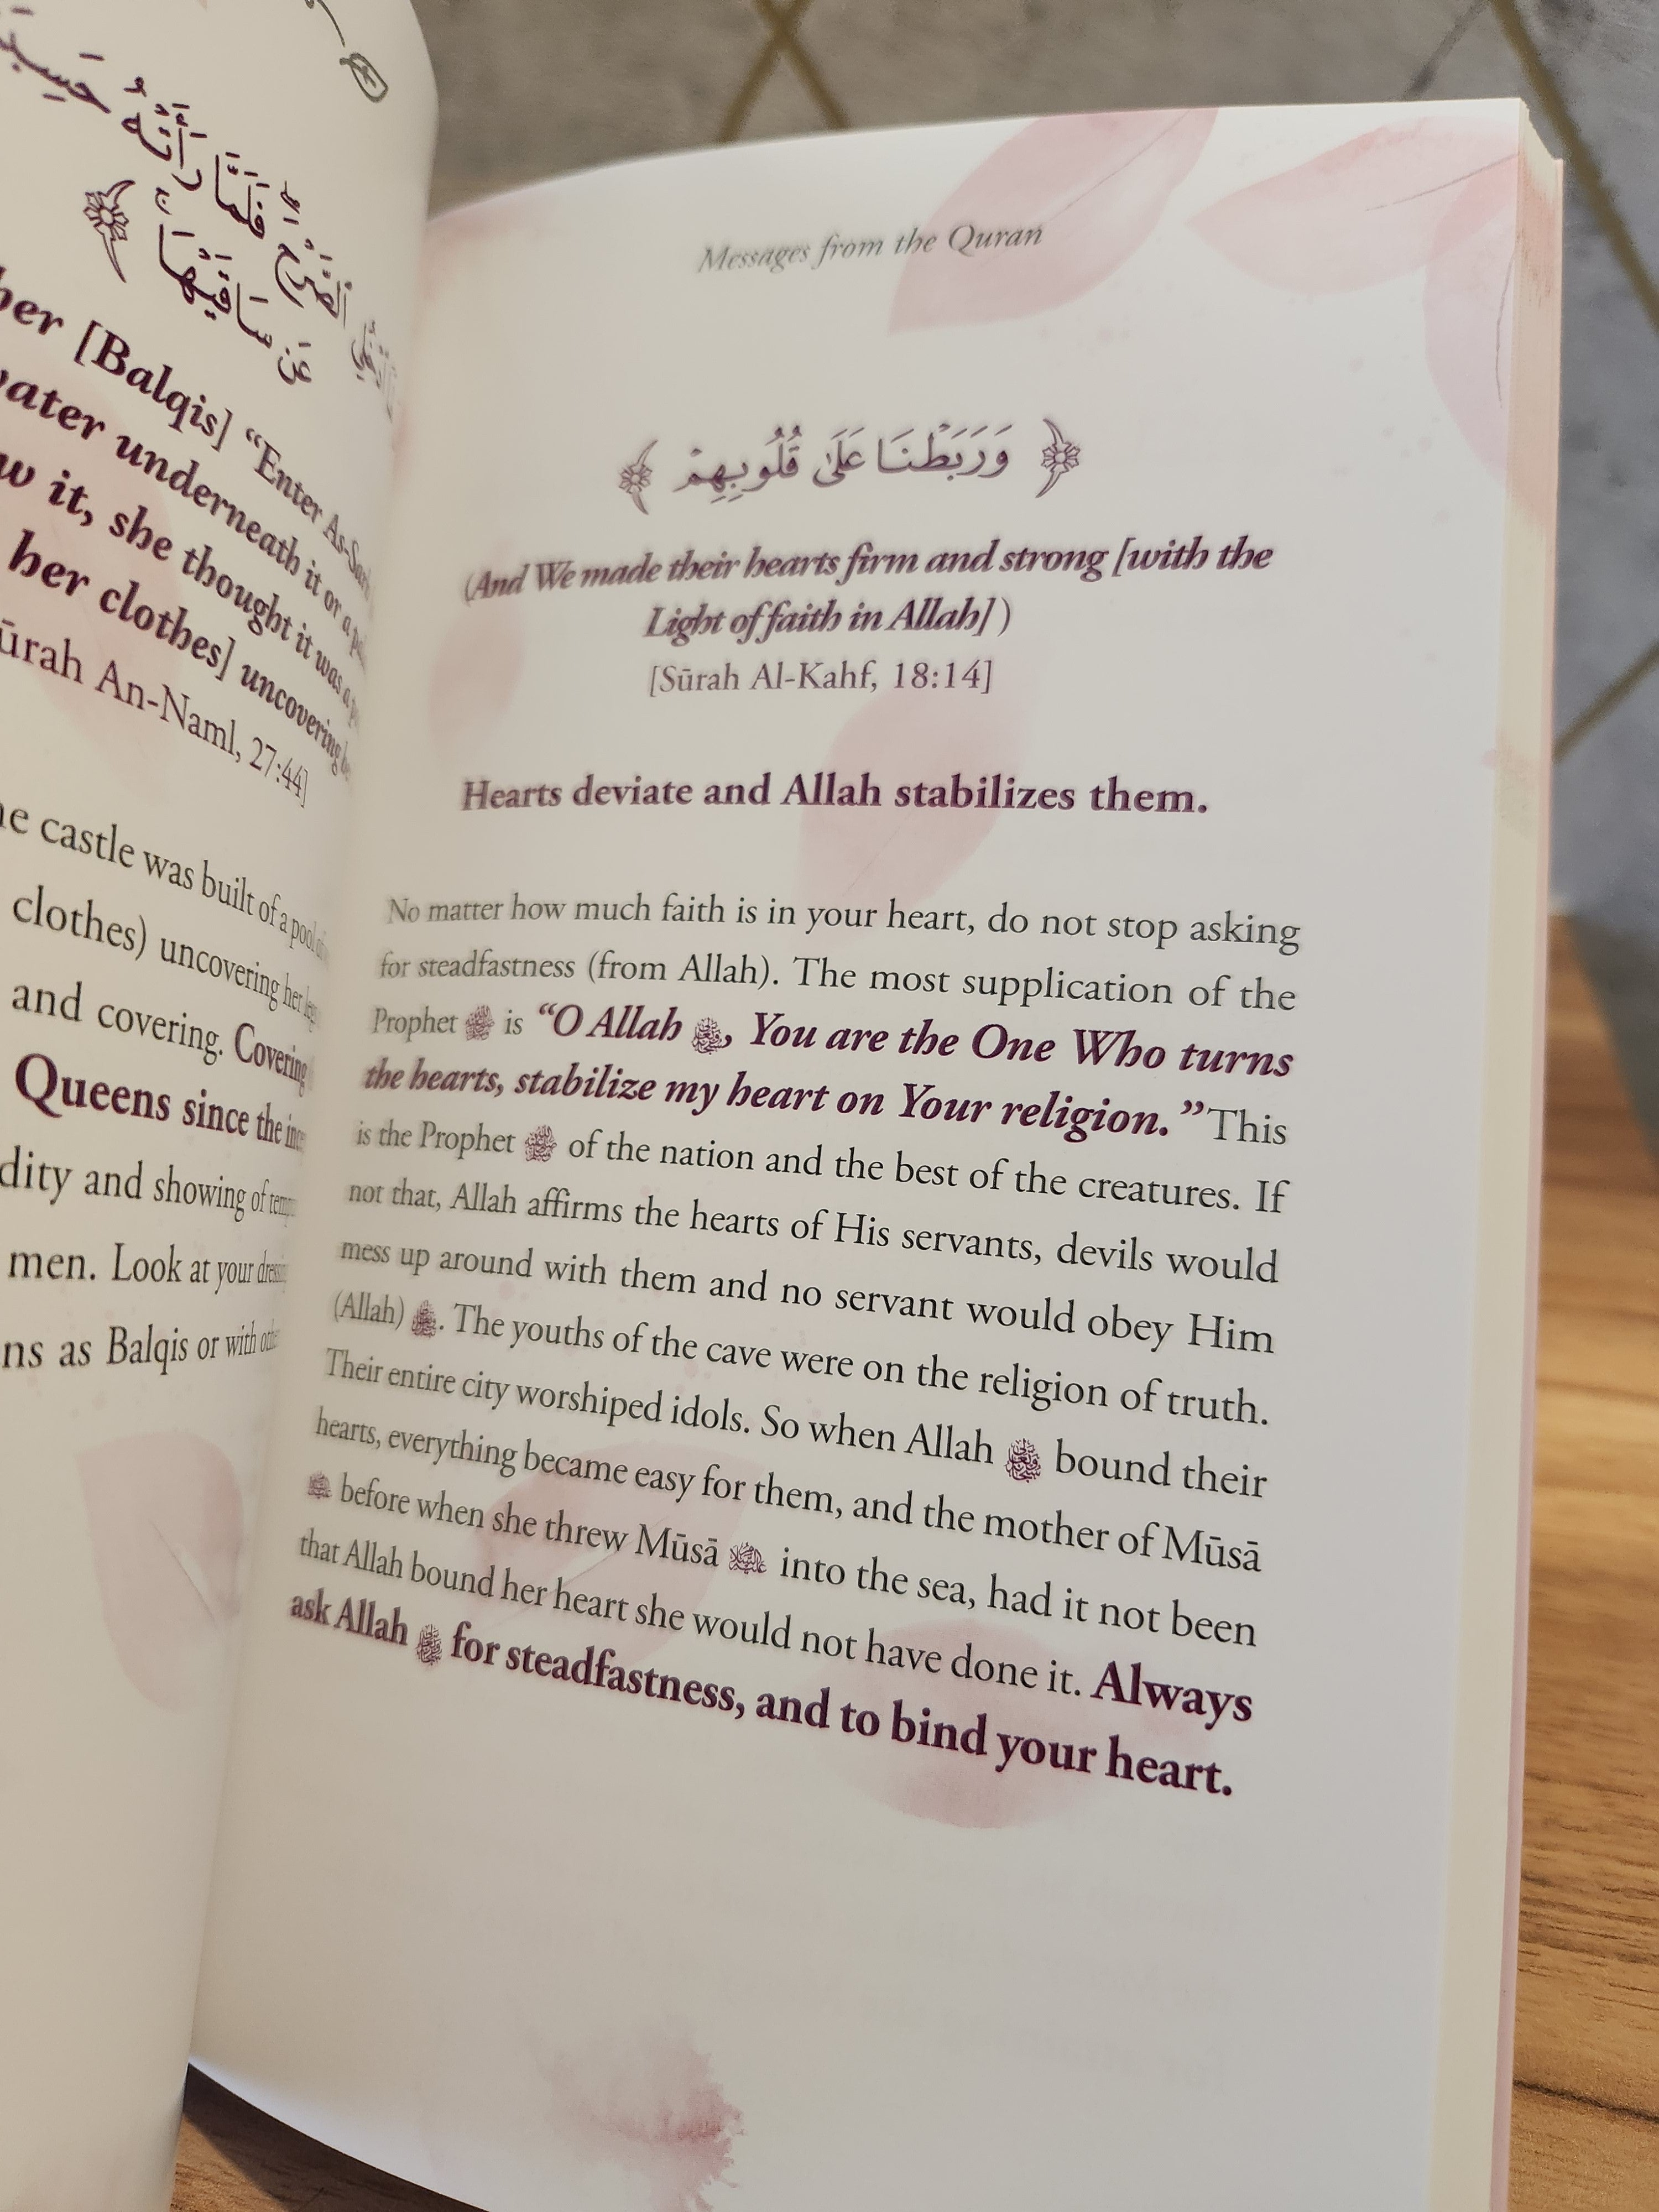 فَلَمَّا رَأَتْهُ
عَن سَاقَيْهَا
her [Balqis] “Enter
water underneath it or a
it, she thought it was a
her clothes] uncovering
Sūrah An-Naml, 27:44]
castle was built of a pool
clothes) uncovering her
and covering. Covering
Queens since the
and showing of
men. Look at your
as Balqis or with
Messages from the Quran
﴿ وَرَبَطْنَا عَلَىٰ قُلُوبِهِمْ ﴾
(And We made their hearts firm and strong [with the
Light of faith in Allah] )
[Sūrah Al-Kahf, 18:14]
Hearts deviate and Allah stabilizes them.
No matter how much faith is in your heart, do not stop asking
for steadfastness (from Allah). The most supplication of the
Prophet ﷺ is “O Allah , You are the One Who turns
the hearts, stabilize my heart on Your religion.” This
is the Prophet ﷺ of the nation and the best of the creatures. If
not that, Allah affirms the hearts of His servants, devils would
mess up around with them and no servant would obey Him
(Allah) . The youths of the cave were on the religion of truth.
Their entire city worshiped idols. So when Allah bound their
hearts, everything became easy for them, and the mother of Mūsā
before when she threw Mūsā into the sea, had it not been
that Allah bound her heart she would not have done it. Always
ask Allah for steadfastness, and to bind your heart.